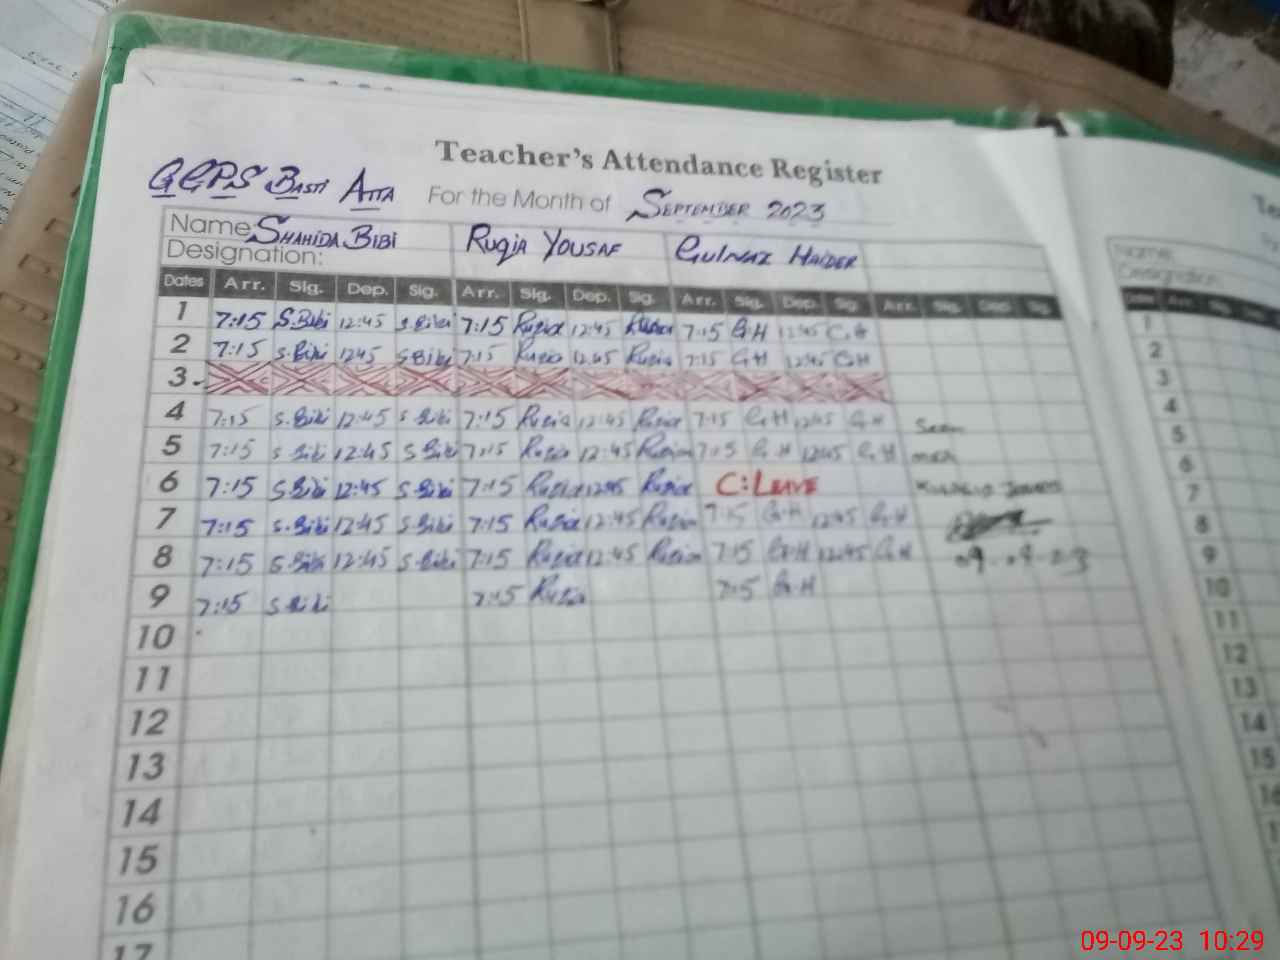 Teacher's Attendance Register
GGPS BASTI ATTA For the Month of SEPTEMBER 2023
Name: SHAHIDA BIBI RUQIA YOUSAF GULNAZ HAIDER
Designation:
Dates Arr. Sig. Dep. Sig. Arr. Sig. Dep. Sig. Arr. Sig. Dep. Sig. Arr. Sig. Dep. Sig.
1 7:15 S.Bibi 12:45 S.Bibi 7:15 Ruqia 12:45 Ruqia 7:15 G.H 12:45 G.H
2 7:15 S.Bibi 12:45 S.Bibi 7:15 Ruqia 12:45 Ruqia 7:15 G.H 12:45 G.H
3
4 7:15 S.Bibi 12:45 S.Bibi 7:15 Ruqia 12:45 Ruqia 7:15 G.H 12:45 G.H Seen
5 7:15 S.Bibi 12:45 S.Bibi 7:15 Ruqia 12:45 Ruqia 7:15 G.H 12:45 G.H
6 7:15 S.Bibi 12:45 S.Bibi 7:15 Ruqia 12:45 Ruqia C:LEAVE
7 7:15 S.Bibi 12:45 S.Bibi 7:15 Ruqia 12:45 Ruqia 7:15 G.H 12:45 G.H
8 7:15 S.Bibi 12:45 S.Bibi 7:15 Ruqia 12:45 Ruqia 7:15 G.H 12:45 G.H 09-09-23
9 7:15 S.Bibi 7:15 Ruqia 7:15 G.H
10
11
12
13
14
15
16
17
Name:
Designation:
1
2
3
4
5
6
7
8
9
10
11
12
13
14
15
16
09-09-23 10:29